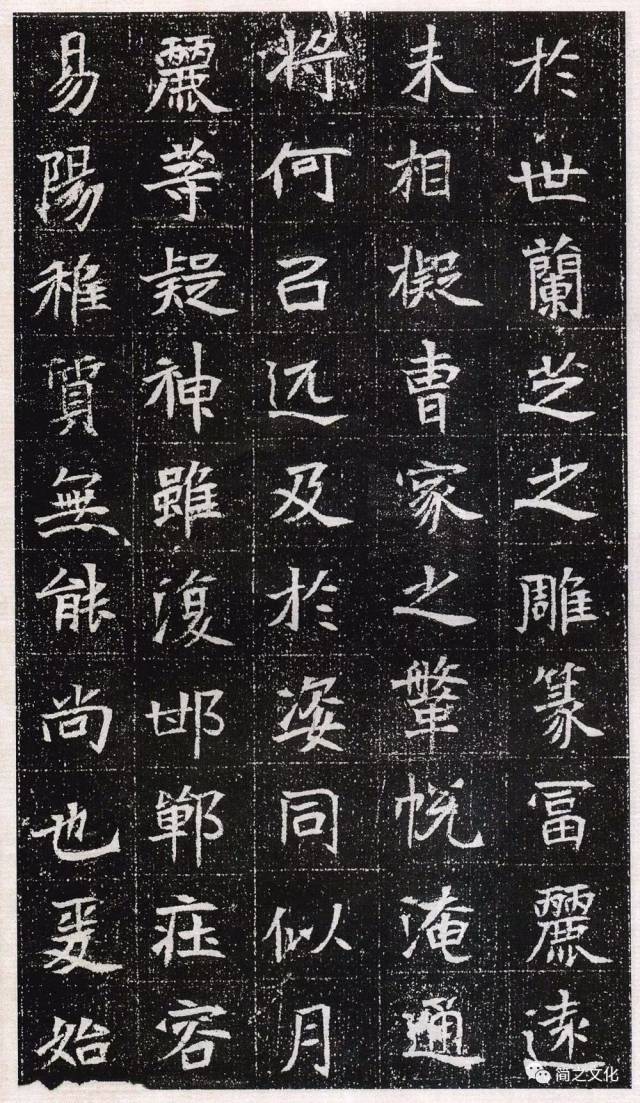 於世蘭芝之雕篆冨麗遠
未相擬曹家之鞶帨淹通
将何以远及於姿同似月
麗等疑神雖復邯鄲莊容
易陽稚質無能尚也爰始
简之文化